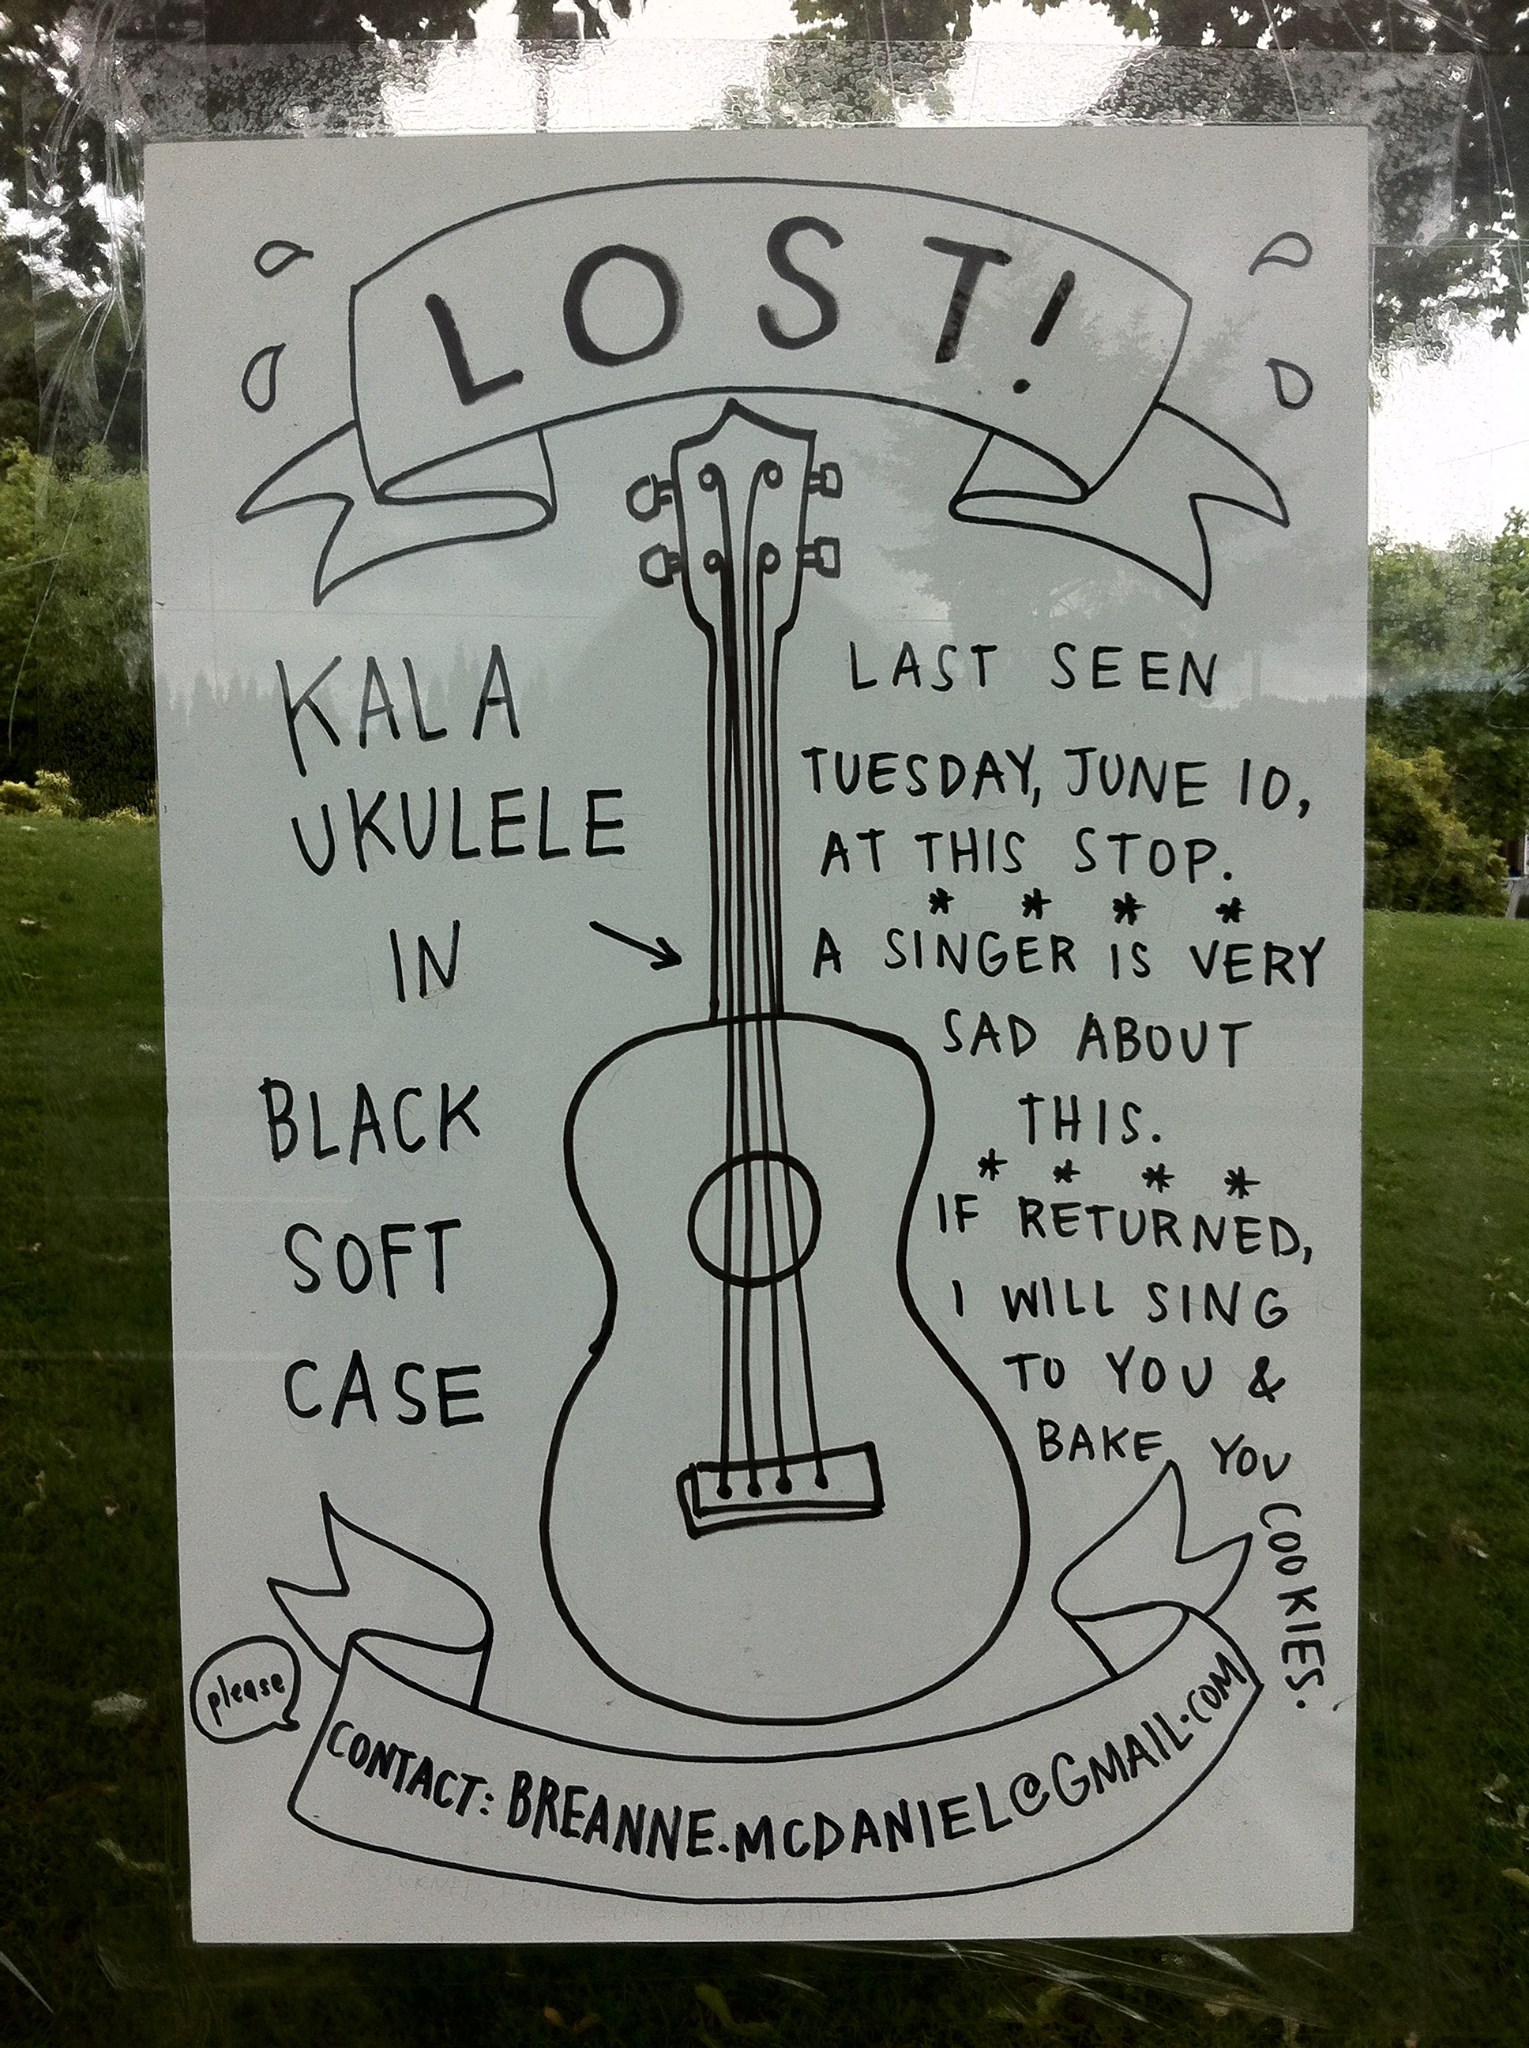 LOST!
KALA
UKULELE
IN
BLACK
SOFT
CASE
LAST SEEN
TUESDAY, JUNE 10,
AT THIS STOP.
* * * *
A SINGER IS VERY
SAD ABOUT
THIS.
* * * *
IF RETURNED,
I WILL SING
TO YOU &
BAKE YOU
COOKIES.
please
CONTACT: BREANNE.MCDANIEL@GMAIL.COM